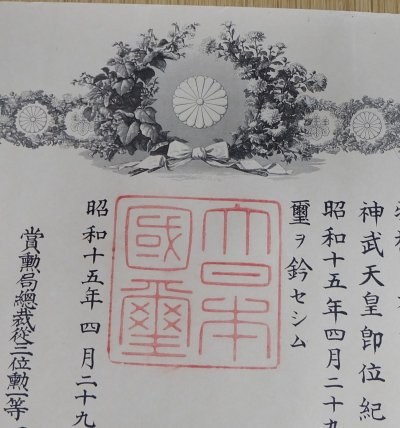 神武天皇即位紀
昭和十五年四月二十九
璽ヲ鈐セシム
大日本
國璽
昭和十五年四月二十九
賞勲局總裁從三位勲一等